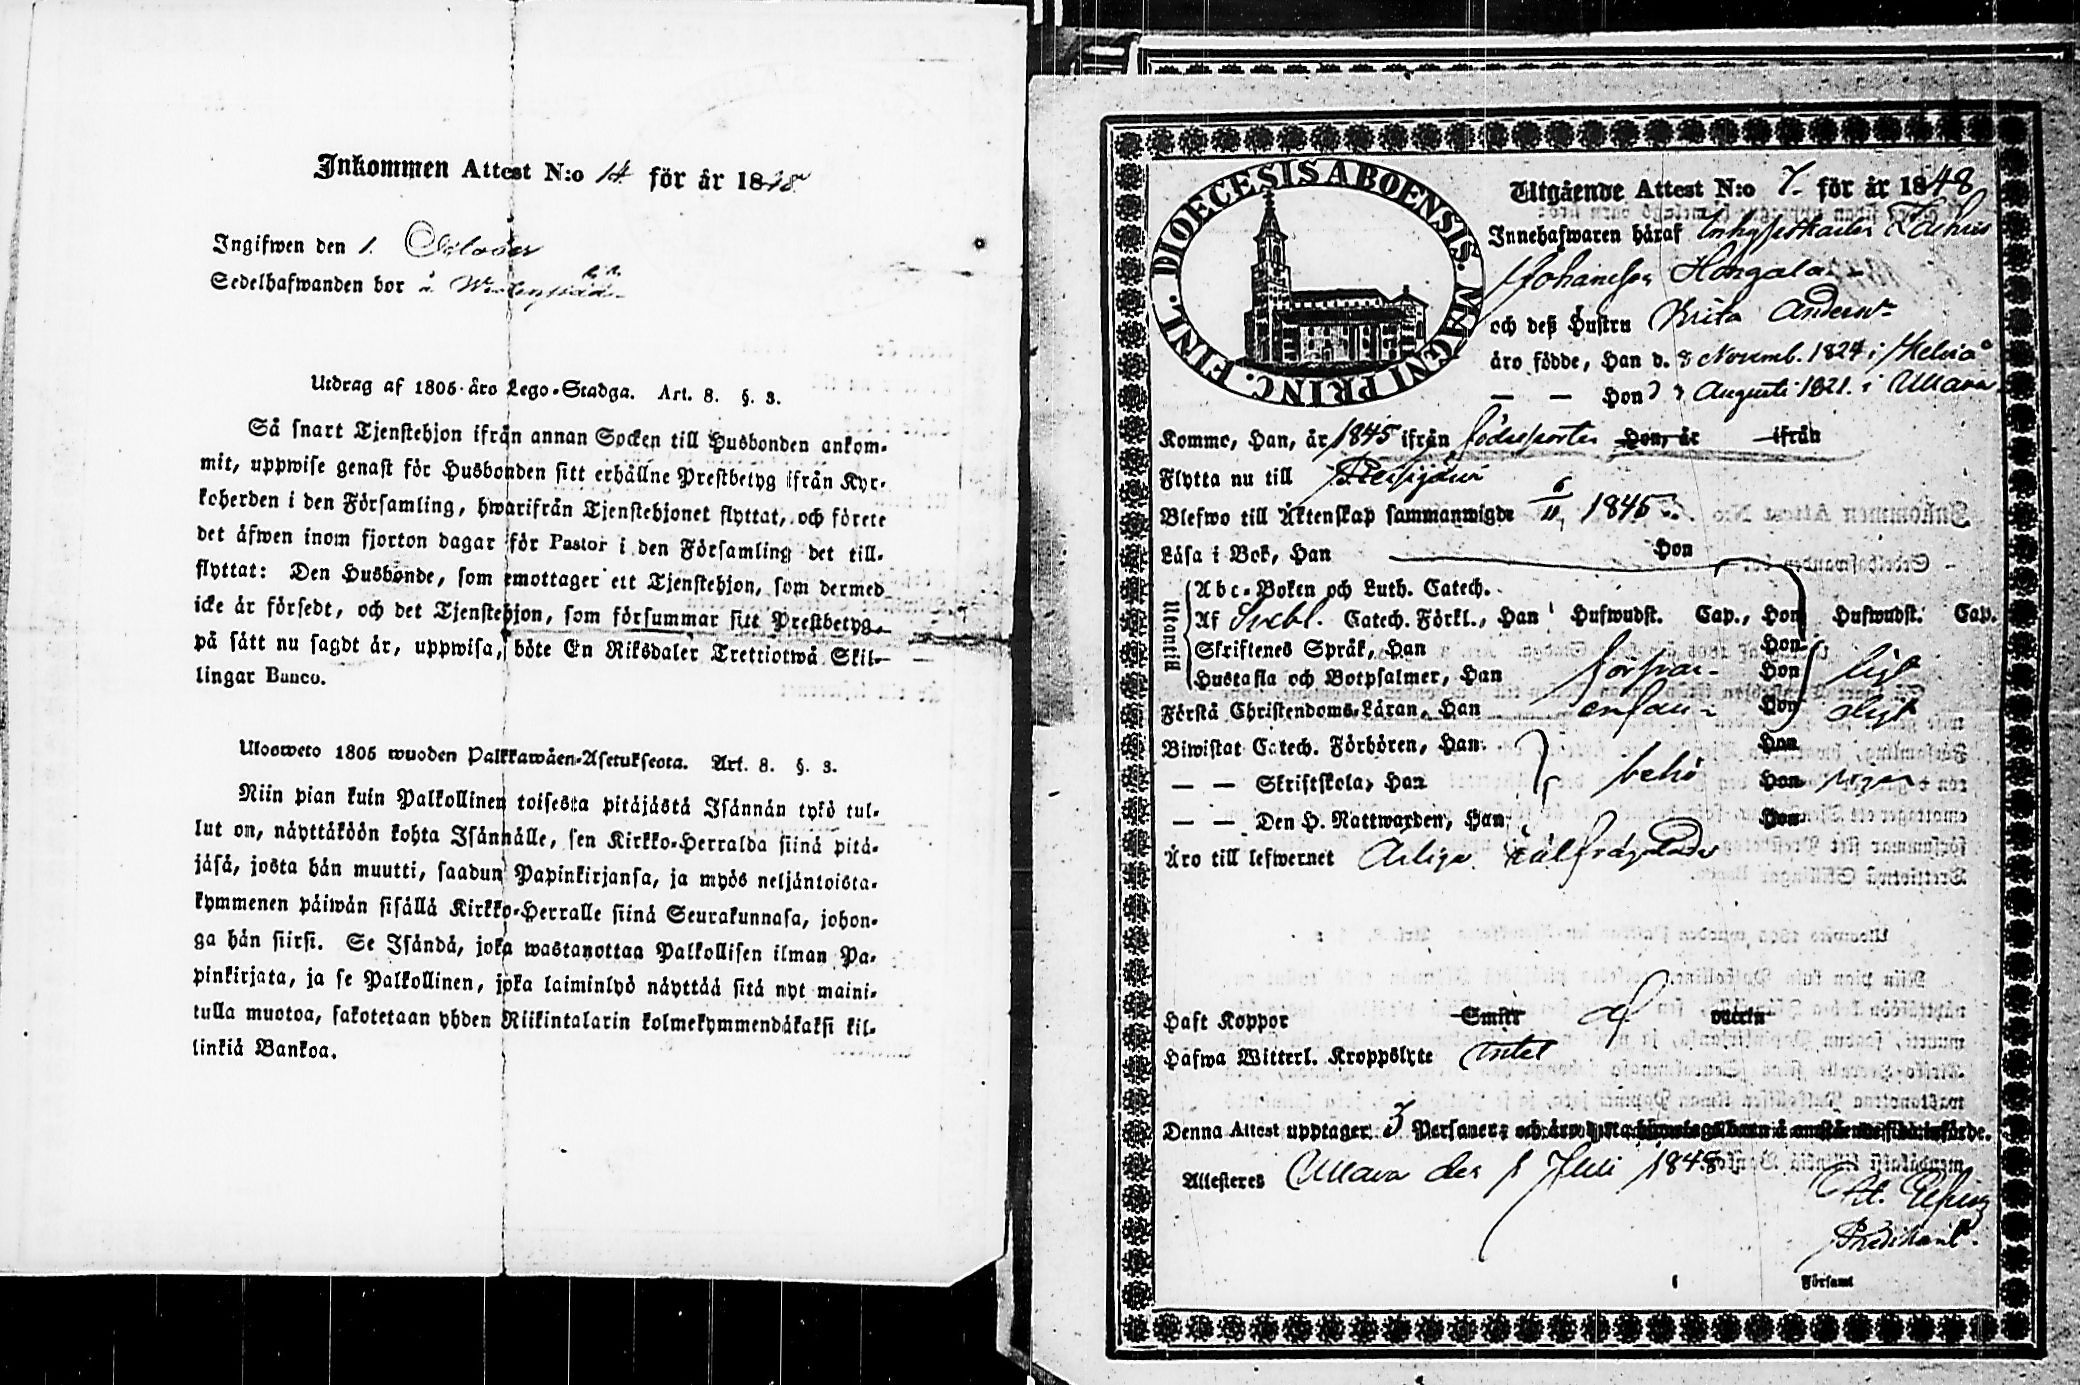 Inkommen Attest N:o 14 för år 1848
Ingifwen den 1. October
Sedelhafwanden bor å
Utdrag af 1805 åro Lego-Stadga. Art. 8. §. 3.
Så snart Tjenstehjon ifrån annan Socken till Husbonden ankom-
mit, uppwise genast för Husbonden sitt erhållne Prestbetyg ifrån Kyr-
koherden i den Församling, hwarifrån Tjenstehjonet flyttat, och förete
det äfwen inom fjorton dagar för Pastor i den Församling det till-
flyttat: Den Husbonde, som emottager ett Tjenstehjon, som dermed
icke är försedt, och det Tjenstehjon, som försummar sitt Prestbetyg,
på sätt nu sagdt är, uppwisa, böte En Riksdaler Trettiotwå Skil-
lingar Banco.
Ulosweto 1805 wuoden Palkkawäen-Asetuksesta. Art. 8. §. 3.
Niin pian kuin Palkollinen toisesta pitäjästä Isännän tykö tul-
lut on, näyttäköön kohta Isännälle, sen Kirkko-Herralda siinä pitä-
jäsä, josta hän muutti, saadun Papinkirjansa, ja myös neljäntoista-
kymmenen päiwän sisällä Kirkko-Herralle siinä Seurakunnasa, johon-
ga hän siirsi. Se Isändä, joka wastanottaa Palkollisen ilman Pa-
pinkirjata, ja se Palkollinen, joka laiminlyö näyttää sitä nyt maini-
tulla muotoa, sakotetaan yhden Riikintalarin kolmekymmendäkaksi kil-
linkiä Bankoa.
DIOECESIS ABOENSIS. MAGNI PRINC. FINL.
Utgående Attest N:o 7. för år 1848
Innehafwaren häraf Inhyseskarlen Zachris
Johansson Hangala
och deß Hustru Brita Anders-
äro födde, Han d. 8 Novemb. 1824 i
— — Hon d. Augusti 1821. i Ullava
Kommo, Han, år 1845 ifrån födelseorten Hon, år ifrån
Flytta nu till
Blefwo till Äktenskap sammanwigde 6/11 1845.
Läsa i Bok, Han Hon
Utantill
Abc-Boken och Luth. Catech.
Af Svebl. Catech. Förkl., Han Hufwudst. Cap., Hon Hufwudst. Cap.
Skriftenes Språk, Han Hon
Hustafla och Botpsalmer, Han försvar- Hon ligt
Förstå Christendoms-Läran, Han enfal- Hon digt
Biwistat Catech. Förhören, Han Hon
— — Skriftskola, Han behö Hon rigen
— — Den H. Nattwarden, Han Hon
Äro till lefwernet Ärliga välfrägdade
Haft Koppor Smitt
Häfwa Witterl. Kroppslyte intet
Denna Attest upptager 3 Personer,
Attesteres Ullava den 1 Juli 1848
Predikant.
i Församl